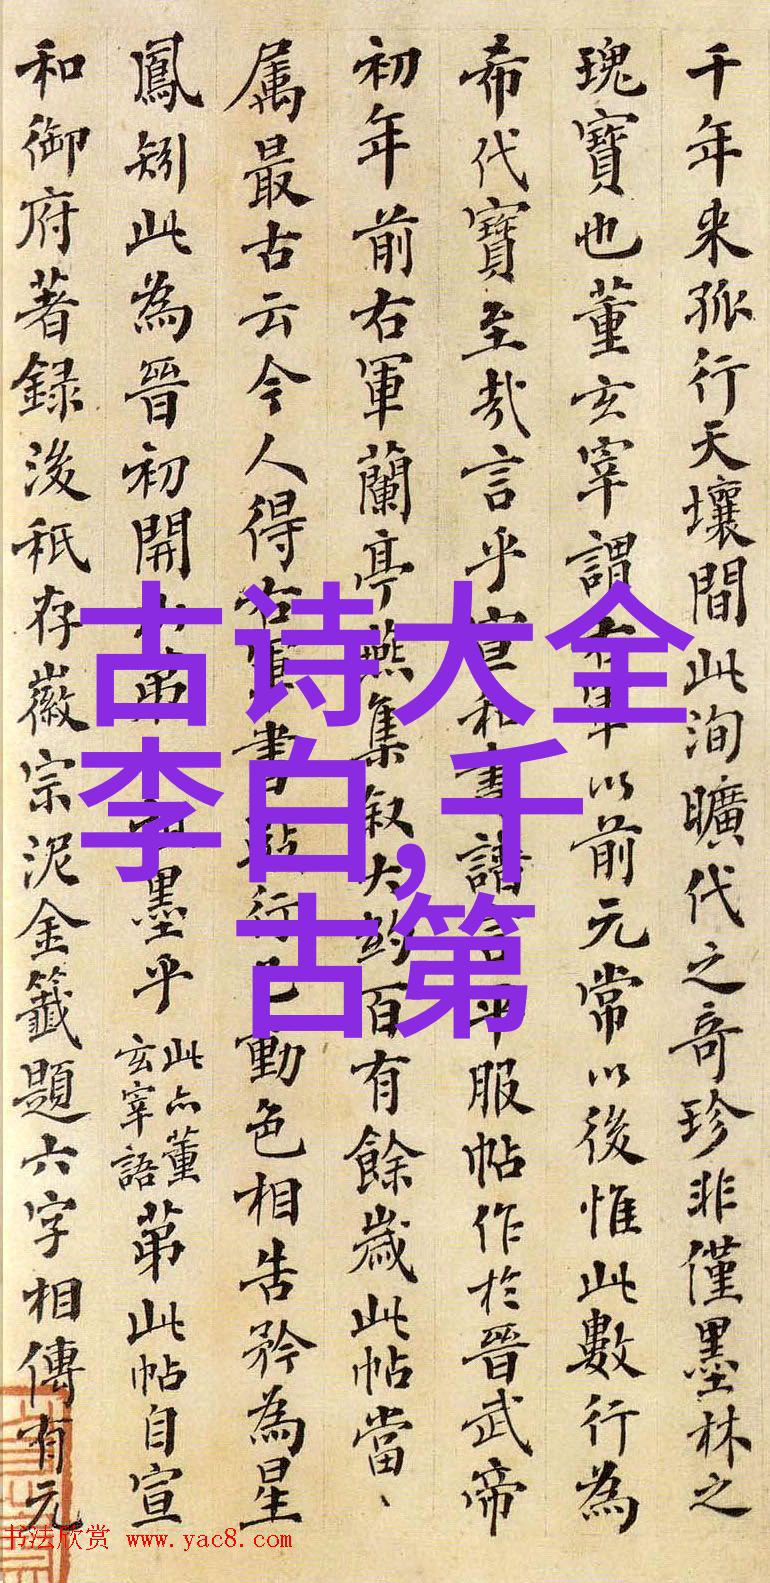 千年来孤行天壤間此洵曠代之奇珍非僅墨林之
瑰寶也董玄宰謂右軍以前元常以後惟此數行為
希代寶至哉言乎宣和書譜平服帖作於晉武帝
初年前右軍蘭亭燕集叙大約百有餘歲此帖當、
属最古云今人得右軍書帖行已動色相告矜為星
鳳矧此為晉初開山第墨乎
此亦董
玄宰語
苐此帖自宣
和御府著録後秖存徽宗泥金籤題六字相傳有元
古诗大全
李白,千
古第
书法欣赏 www.yac8.com